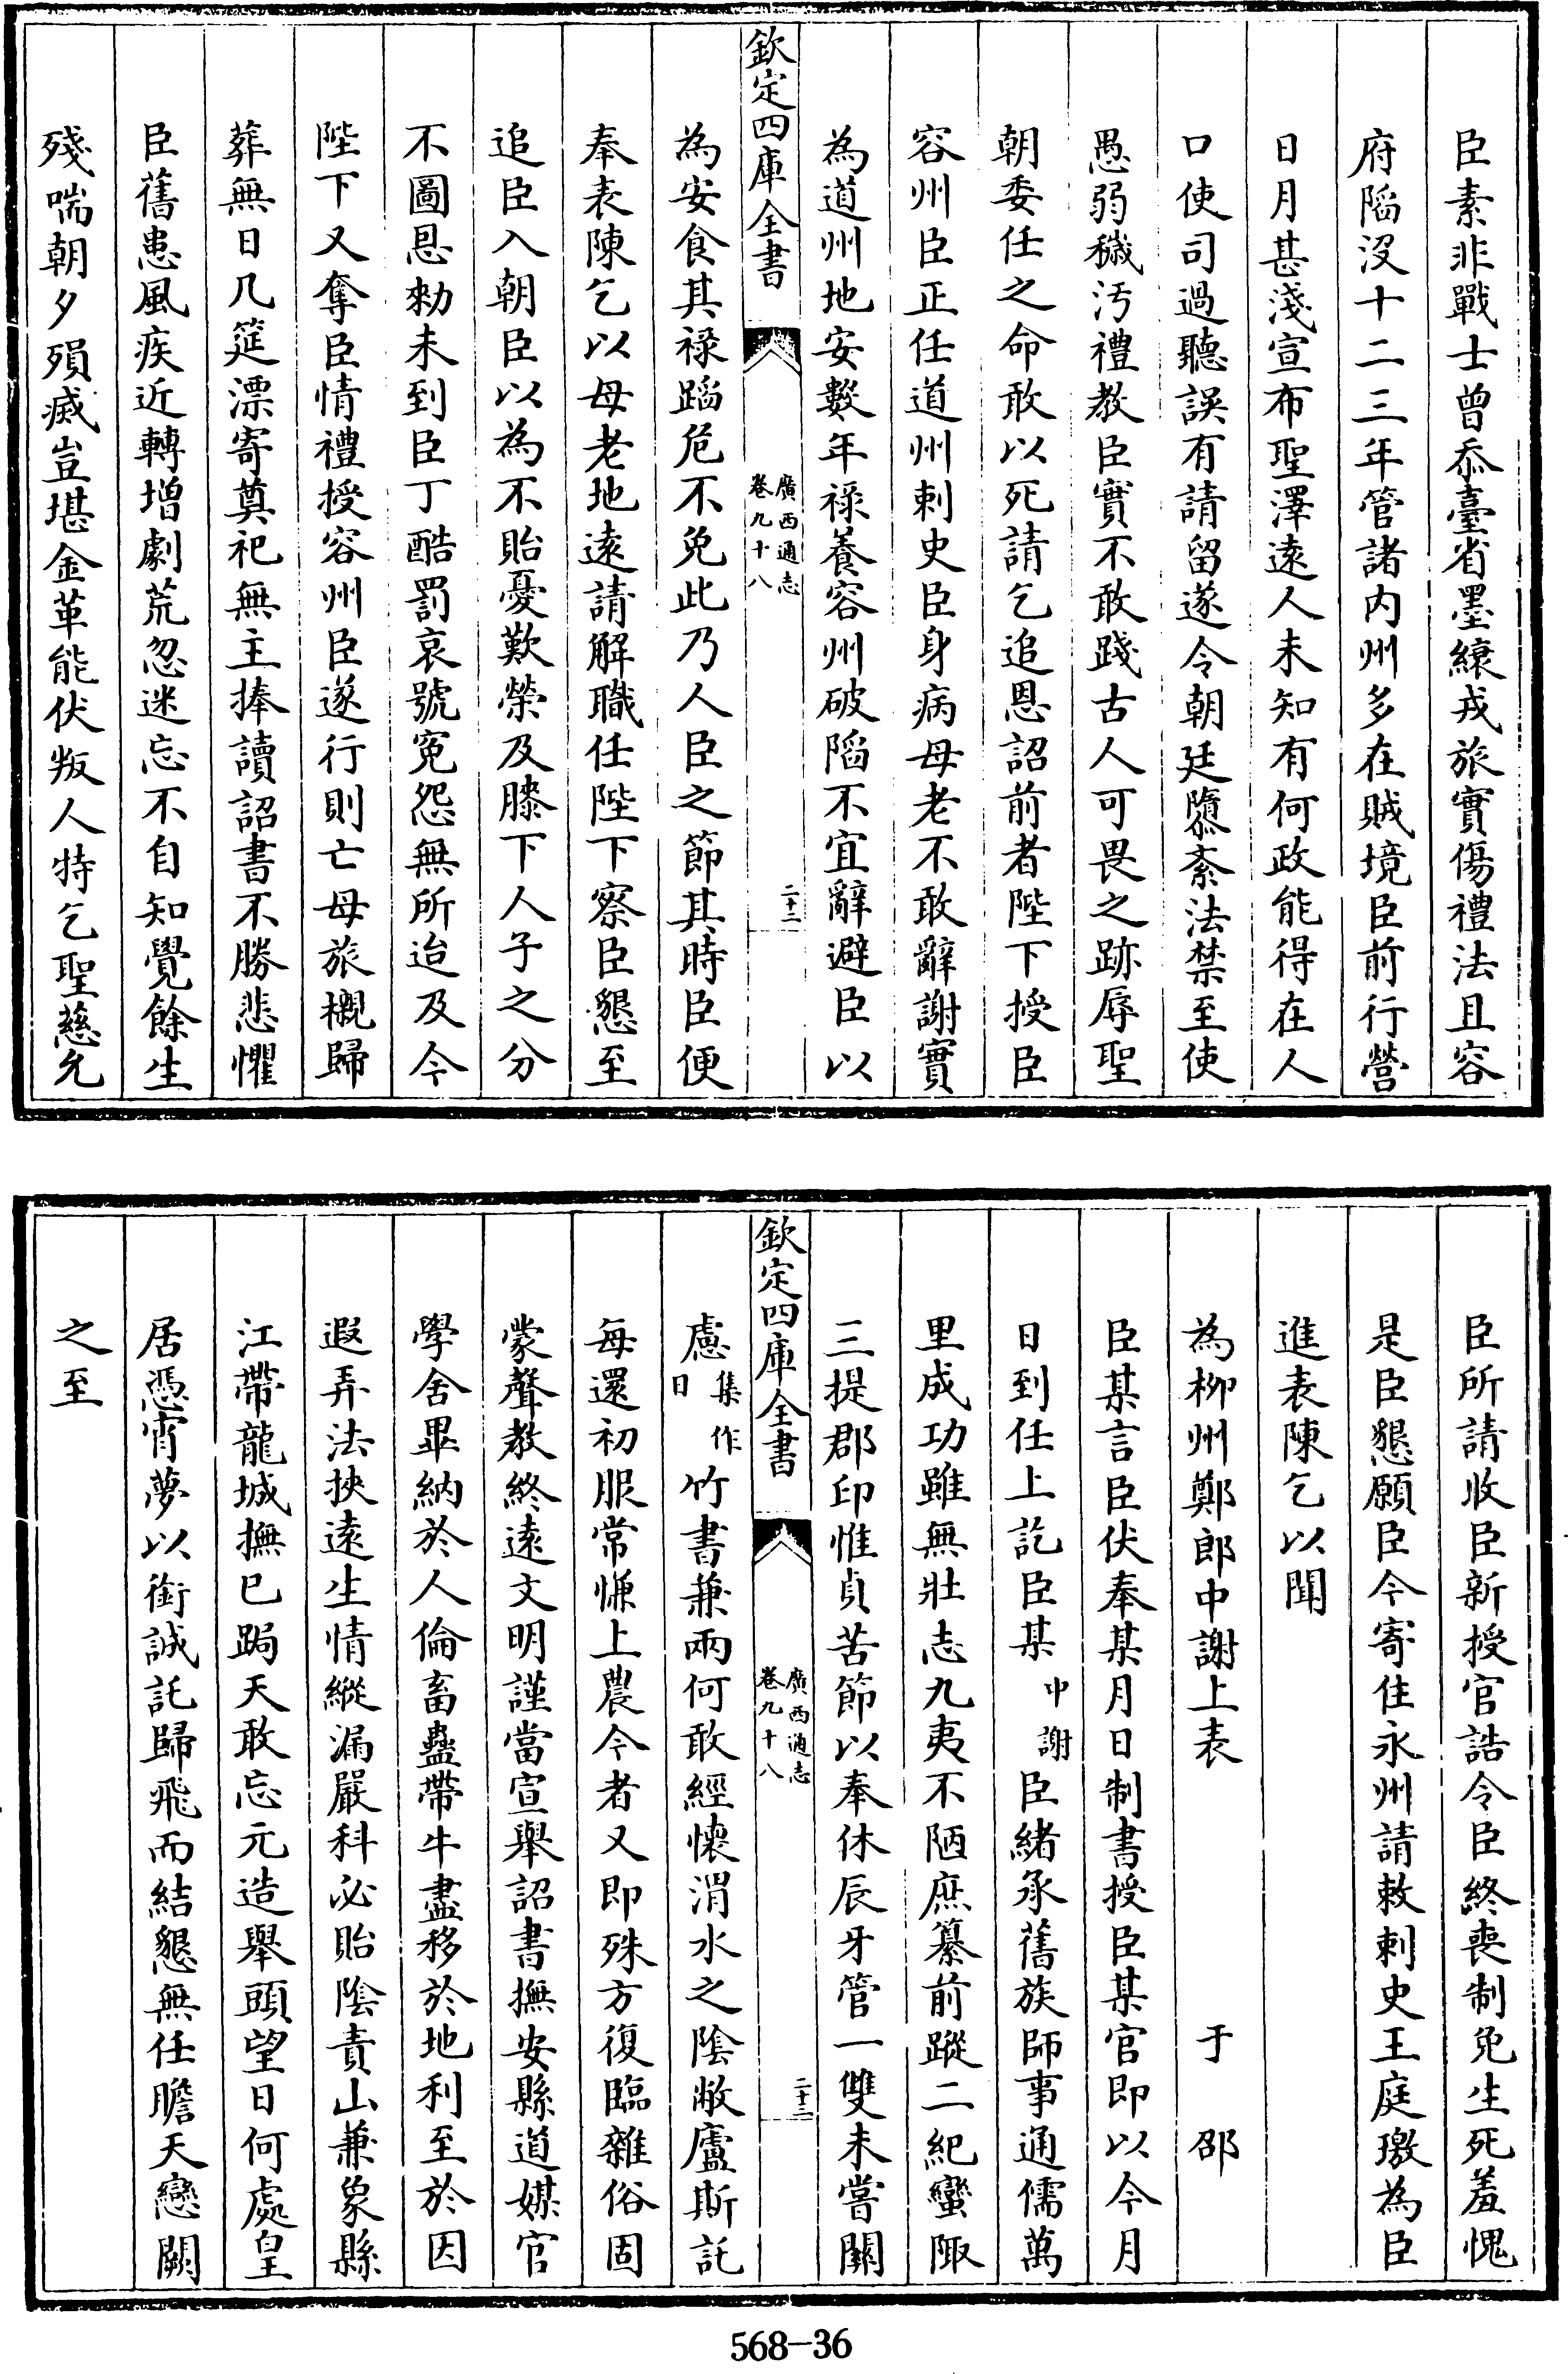 臣素非戰士曾忝臺省墨縗戎旅實傷禮法且容
府陷沒十二三年管諸内州多在賊境臣前行營
日月甚淺宣布聖澤遠人未知有何政能得在人
口使司過聽誤有請留遂令朝廷隳紊法禁至使
愚弱穢汚禮教臣實不敢踐古人可畏之跡辱聖
朝委任之命敢以死請乞追恩詔前者陛下授臣
容州臣正任道州刺史臣身病母老不敢辭謝實
為道州地安數年禄養容州破陷不宜辭避臣以
欽定四庫全書
廣西通志
卷九十八
二十二
為安食其禄蹈危不免此乃人臣之節其時臣便
奉表陳乞以母老地遠請解職任陛下察臣懇至
追臣入朝臣以為不貽憂歎榮及膝下人子之分
不圖恩勅未到臣丁酷罰哀號寃怨無所迨及今
陛下又奪臣情禮授容州臣遂行則亡母旅櫬歸
葬無日几筵漂寄奠祀無主捧讀詔書不勝悲懼
臣舊患風疾近轉增劇荒忽迷忘不自知覺餘生
殘喘朝夕殞㓕豈堪金革能伏叛人特乞聖慈允
臣所請收臣新授官誥令臣終喪制免生死羞愧
是臣懇願臣今寄住永州請敕刺史王庭璬為臣
進表陳乞以聞
為柳州鄭郎中謝上表　于邵
臣某言臣伏奉某月日制書授臣某官即以今月
日到任上訖臣某中謝臣緒承舊族師事通儒萬
里成功雖無壯志九夷不陋庶纂前蹤二紀蠻陬
三提郡印惟貞苦節以奉休辰牙管一雙未嘗關
欽定四庫全書
廣西通志
卷九十八
二十三
慮集作日竹書兼兩何敢經懷渭水之陰敝廬斯託
每還初服常慊上農今者又即殊方復臨雜俗固
蒙聲教終遠文明謹當宣舉詔書撫安縣道媒官
學舍畢納於人倫畜蠱帶牛盡移於地利至於因
遐弄法挾遠生情縱漏嚴科必貽陰責山兼象縣
江帶龍城撫已跼天敢忘元造舉頭望日何處皇
居憑宵夢以銜誠託歸飛而結懇無任瞻天戀闕
之至
568-36